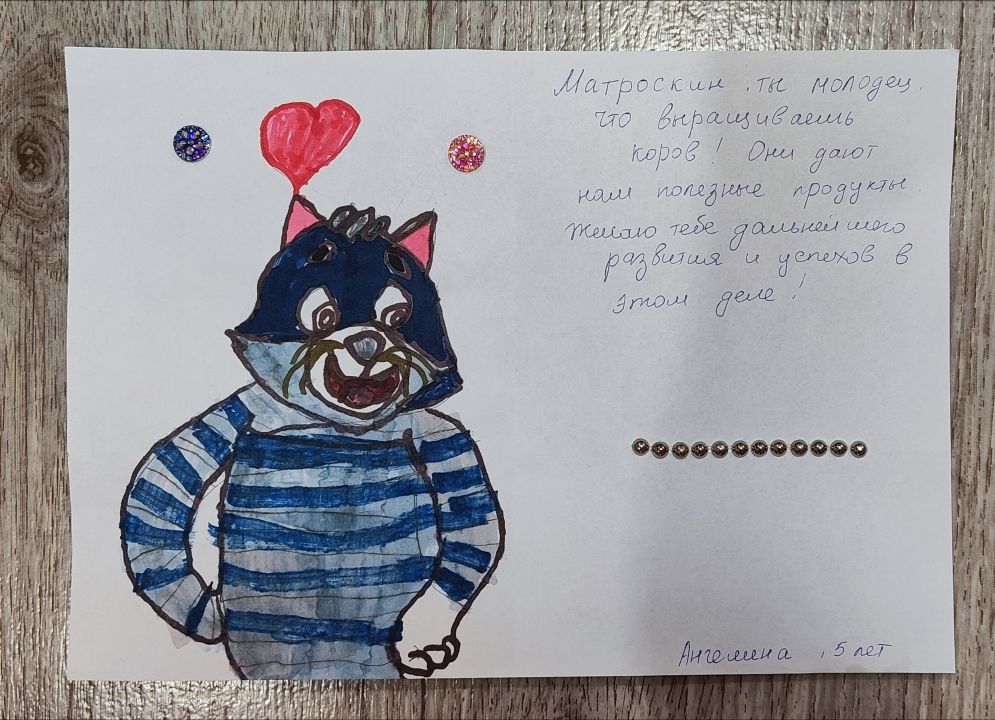 Матроскин, ты молодец,
что выращиваешь
коров! Они дают
нам полезные продукты.
Желаю тебе дальнейшего
развития и успехов в
этом деле!
Ангелина, 5 лет